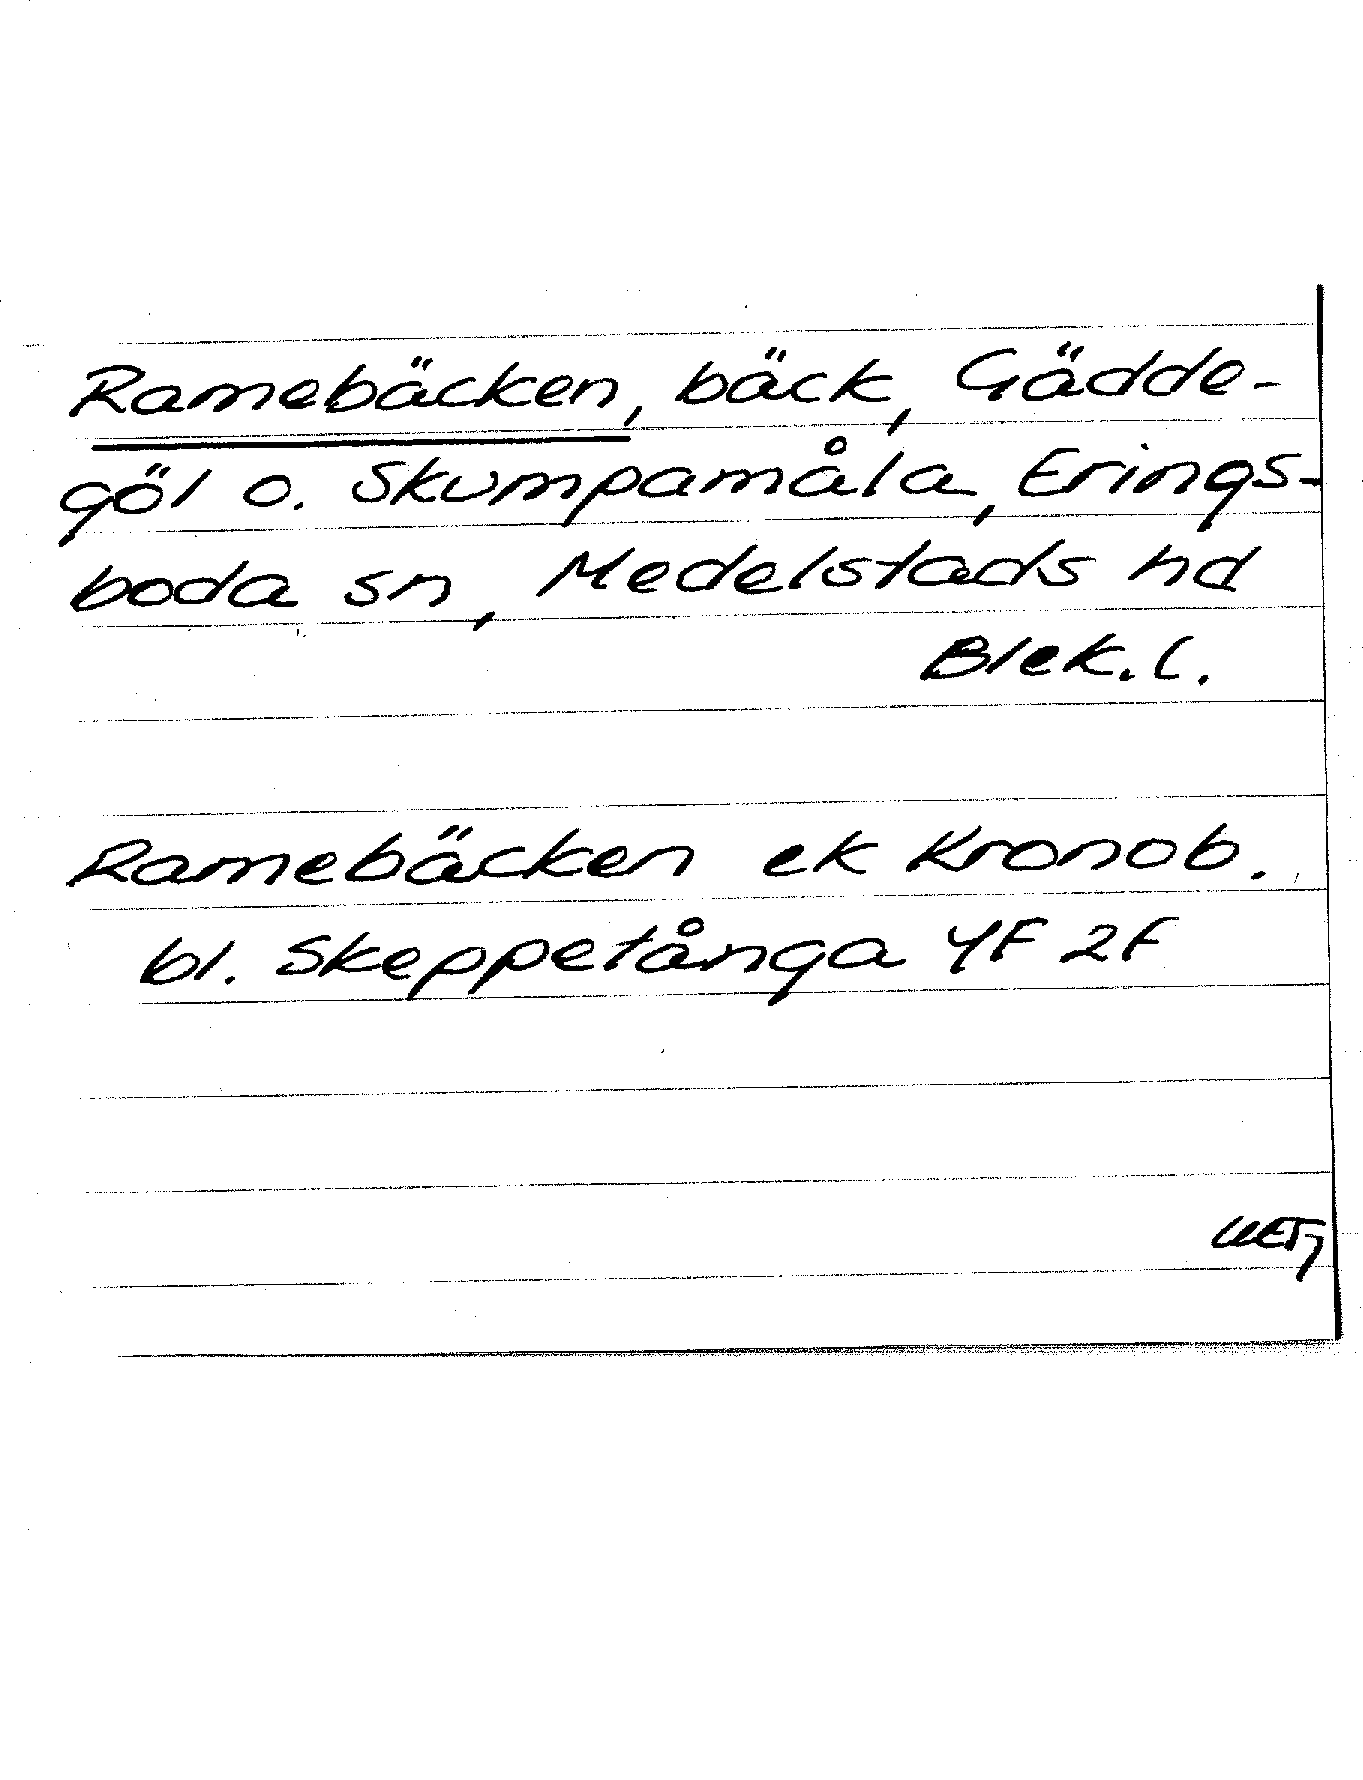 Ramebäcken, bäck, Gädde-
göl o. Skumpamåla, Erings-
boda sn, Medelstads hd
Blek. l.
Ramebäcken ek Kronob.
bl. Skeppetånga 4F 2f